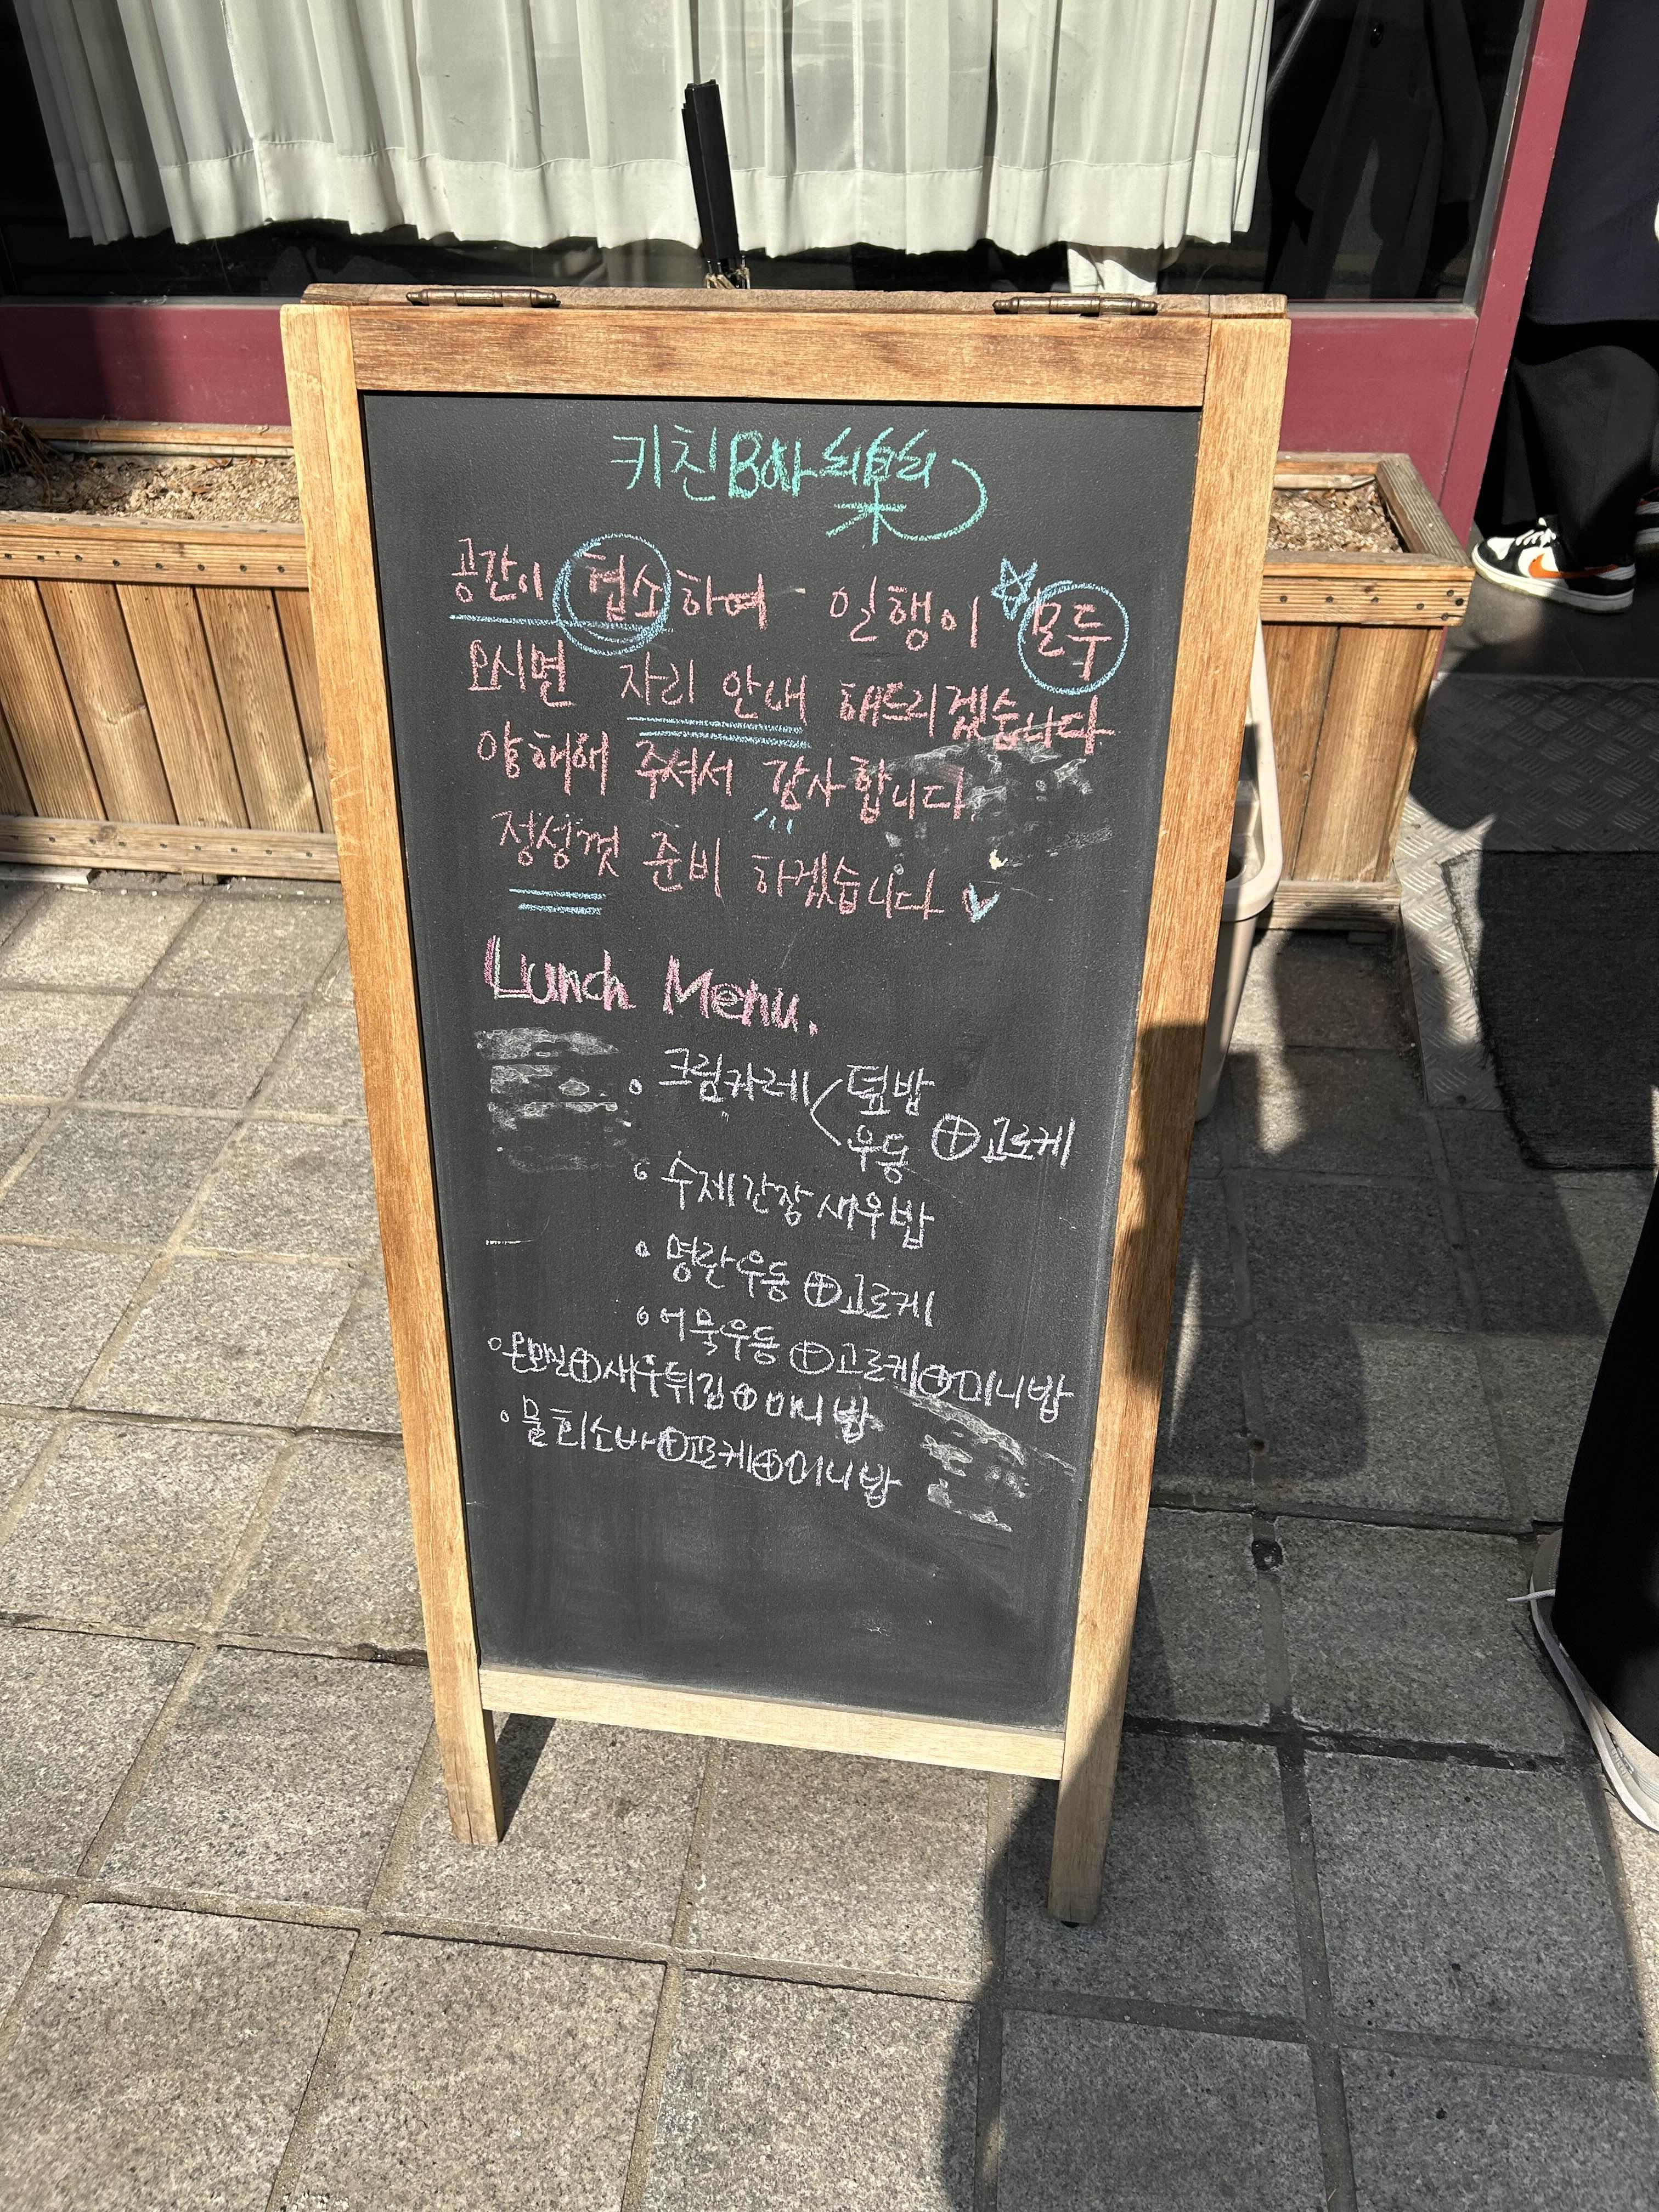 키친Bar 樂
공간이 협소하여 일행이 모두
오시면 자리 안내 해드리겠습니다
양해해 주셔서 감사합니다
정성껏 준비 하겠습니다
Lunch Menu.
크림카레 덮밥
우동 ⊕고로케
수제간장새우밥
명란우동⊕고로케
어묵우동⊕고로케⊕미니밥
온모밀⊕새우튀김⊕미니밥
물회소바⊕고로케⊕미니밥